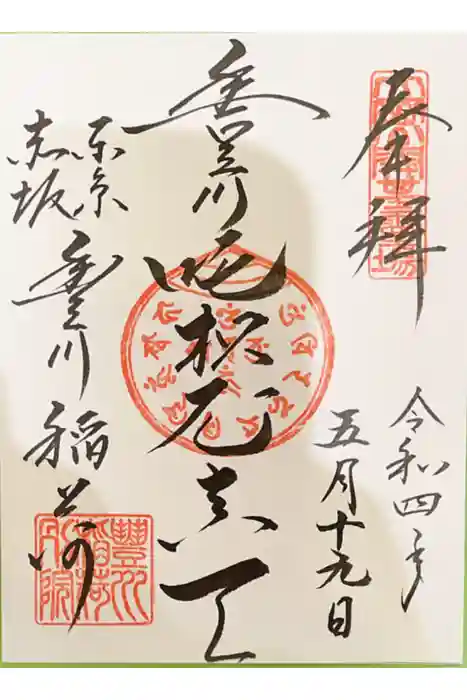 奉拝
令和四年
五月十九日
豊川吒枳尼真天
東京
赤坂
豊川稲荷
豐川
稲荷
別院